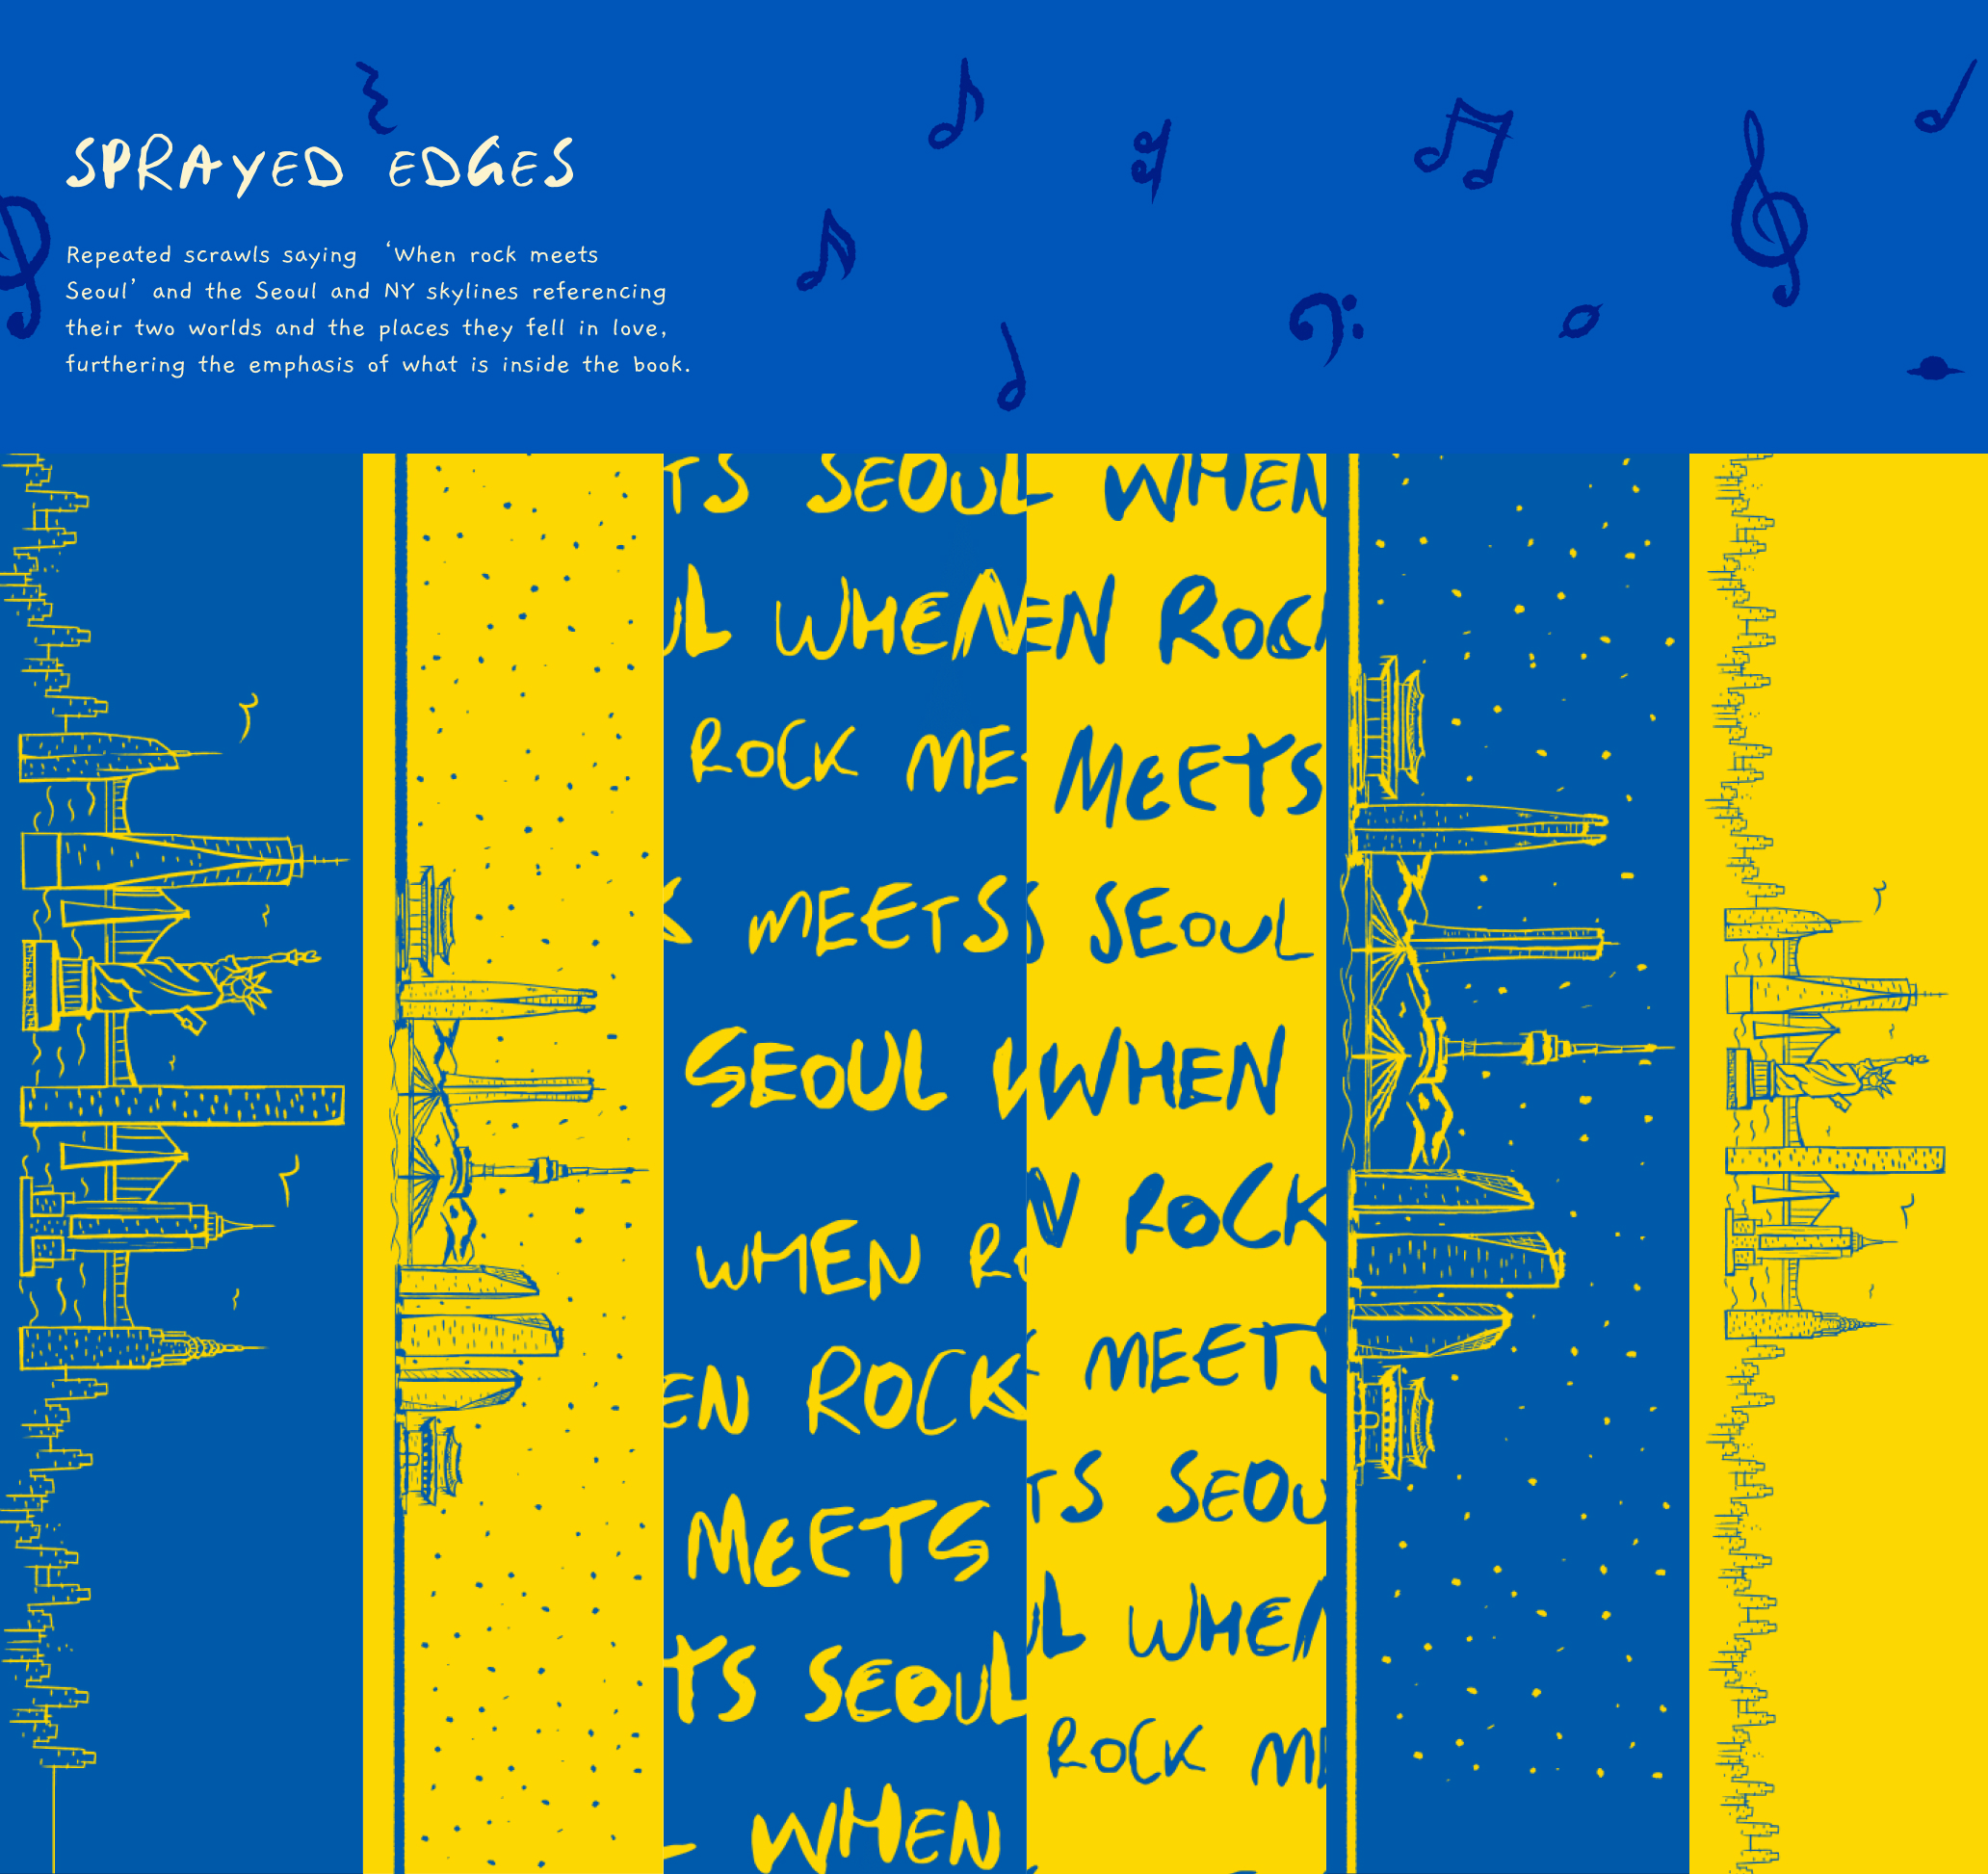 SPRAYED EDGES
Repeated scrawls saying ‘When rock meets
Seoul’ and the Seoul and NY skylines referencing
their two worlds and the places they fell in love,
furthering the emphasis of what is inside the book.
TS SEOUL
UL WHEN
ROCK ME
K MEETS
SEOUL W
WHEN RO
EN ROCK
MEETS
TS SEOUL
L WHEN
L WHEN
EN ROCK
MEETS
S SEOUL
WHEN
N ROCK
MEETS
TS SEOU
UL WHEN
ROCK ME